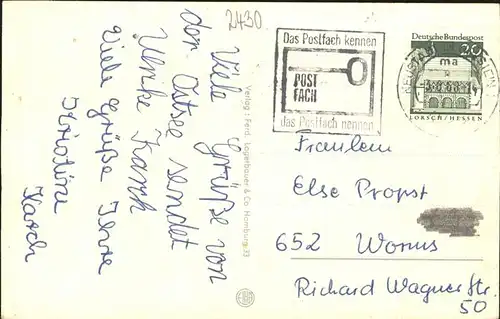 2430
Viele Grüße von
der Ostsee sendet
Ulrike Karch
Viele Grüße Ihre
Karch
Verlag: Ferd. Lagerbauer & Co Hamburg 33
Das Postfach kennen
POST
FACH
das Postfach nennen
Deutsche Bundespost
20
ma
LORSCH/HESSEN
Fräulein
Else Propst
652 Worms
Richard Wagner Str.
50